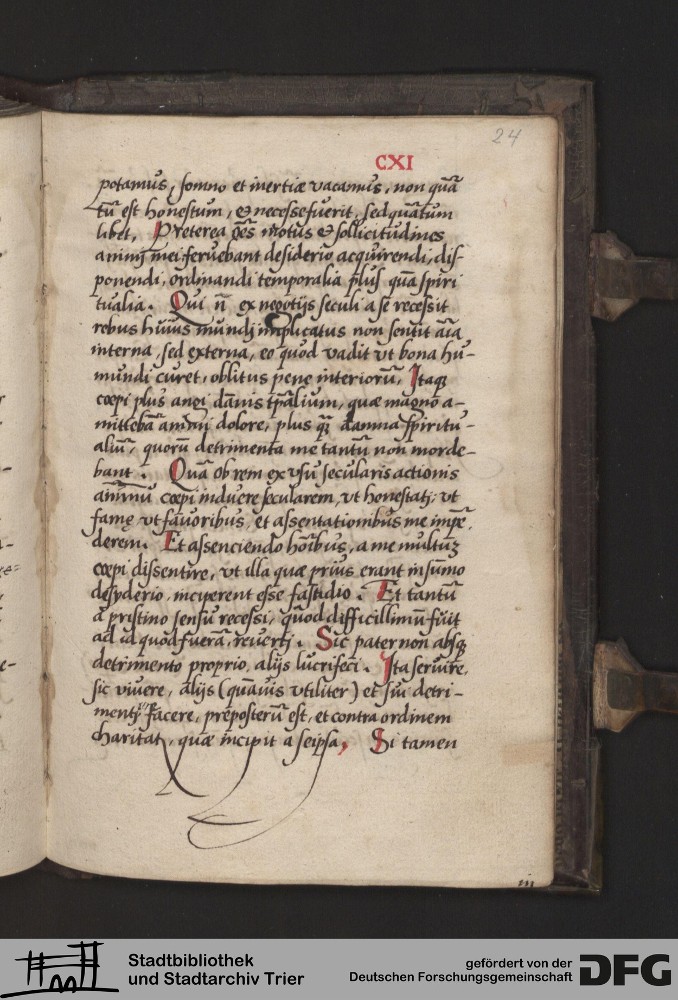 24
CXI
potamus, somno et inertiæ vacamus, non quā
tū est honestum, & necesse fuerit, sed quātum
libet. Preterea oēs motus & sollicitudines
animi mei feruebant desiderio acquirendi, dis-
ponendi, ordinandi temporalia plus quā spiri
tualia. Qui n̄ ex negotijs seculi a se recessit
rebus huius mundi implicatus non sentit dāa
interna, sed externa, eo quod vadit vt bona hu-
mundi curet, oblitus pene interiorū. Itaq
cœpi plus angi dānis tp̄alium, quæ magno a-
mittebā animi dolore, plus q̄ damna spiritu-
aliū, quorū detrimenta me tantū non morde-
bant. Quā ob rem ex vsu secularis actionis
animū cœpi induere secularem, vt honestati, vt
famę vt fauoribus, et assentationibus me impē
derem. Et assenciendo hōibus, a me multū
cœpi dissentire, vt illa quæ prius erant in sūmo
desyderio, inciperent esse fastidio. Et tantū
a pristino sensu recessi, quod difficillimū fuit
ad id quod fuerā, reuerti. Sic pater non absq
detrimento proprio, alijs lucrifeci. Ita seruire,
sic viuere, alijs (quāuis vtiliter) et sui detri-
mentū facere, prēposterū est, et contra ordinem
charitat, quæ incipit a seipsa, Si tamen
iii
Stadtbibliothek
und Stadtarchiv Trier
gefördert von der
Deutschen Forschungsgemeinschaft
DFG